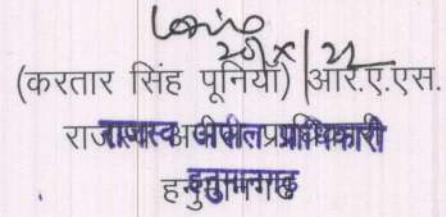 (करतार सिंह पूनियां) आर.ए.एस.
राजस्व अपील प्राधिकारी
हनुमानगढ